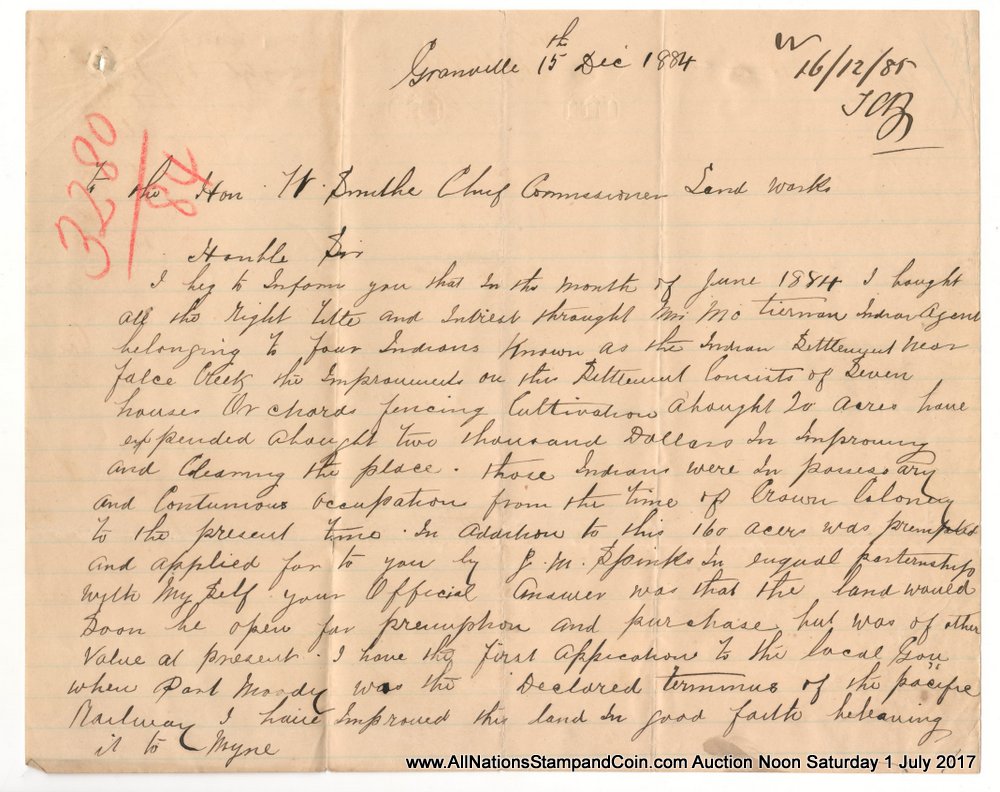 Granville 15th Dec 1884
16/12/85
3280/84
To the Hon W. Smithe Chief Commissioner Land Works
Honble Sir
I beg to Inform you that In the month of June 1884 I bought
all the right title and Intrest throught Mr Mc Tiernan Indian Agent
belonging to four Indians Known as the Indian Settlement near
falce Creek the Improvments on this Settlement Consists of Seven
houses Orchards fencing Cultivation abought 20 acres have
expended abought two thousand Dollars In Improving
and Cleaning the place. those Indians were In possessary
and Contunious occupation from the time of Crown Coloney
to the present time. In addition to this 160 acers was prempted
and applied for to you by J. M. Spinks In enqual partership
with My Self your Official answer was that the land would
Soon be open for premption and purchase but was of other
Value at present. I have the first Appication to the local Gov
when Port Moody was the Declared terminus of the pacific
Railway I have Improved this land In good faith beleaving
it to Myne
www.AllNationsStampandCoin.com Auction Noon Saturday 1 July 2017